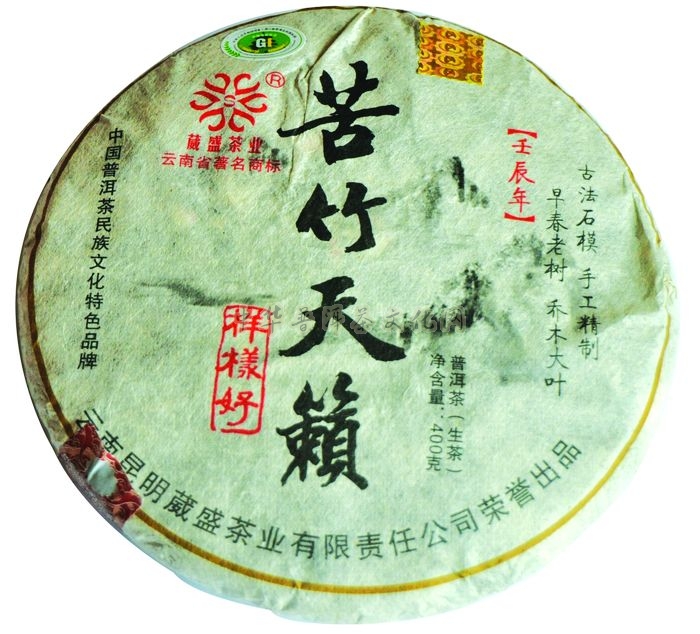 GI
R
葳盛茶业
云南省著名商标
苦竹天籟
【壬辰年】
古法石模 手工精制
早春老树 乔木大叶
中国普洱茶民族文化特色品牌
样樣好
普洱茶（生茶）
净含量：400克
云南昆明葳盛茶业有限责任公司荣誉出品
中华普洱茶文化网